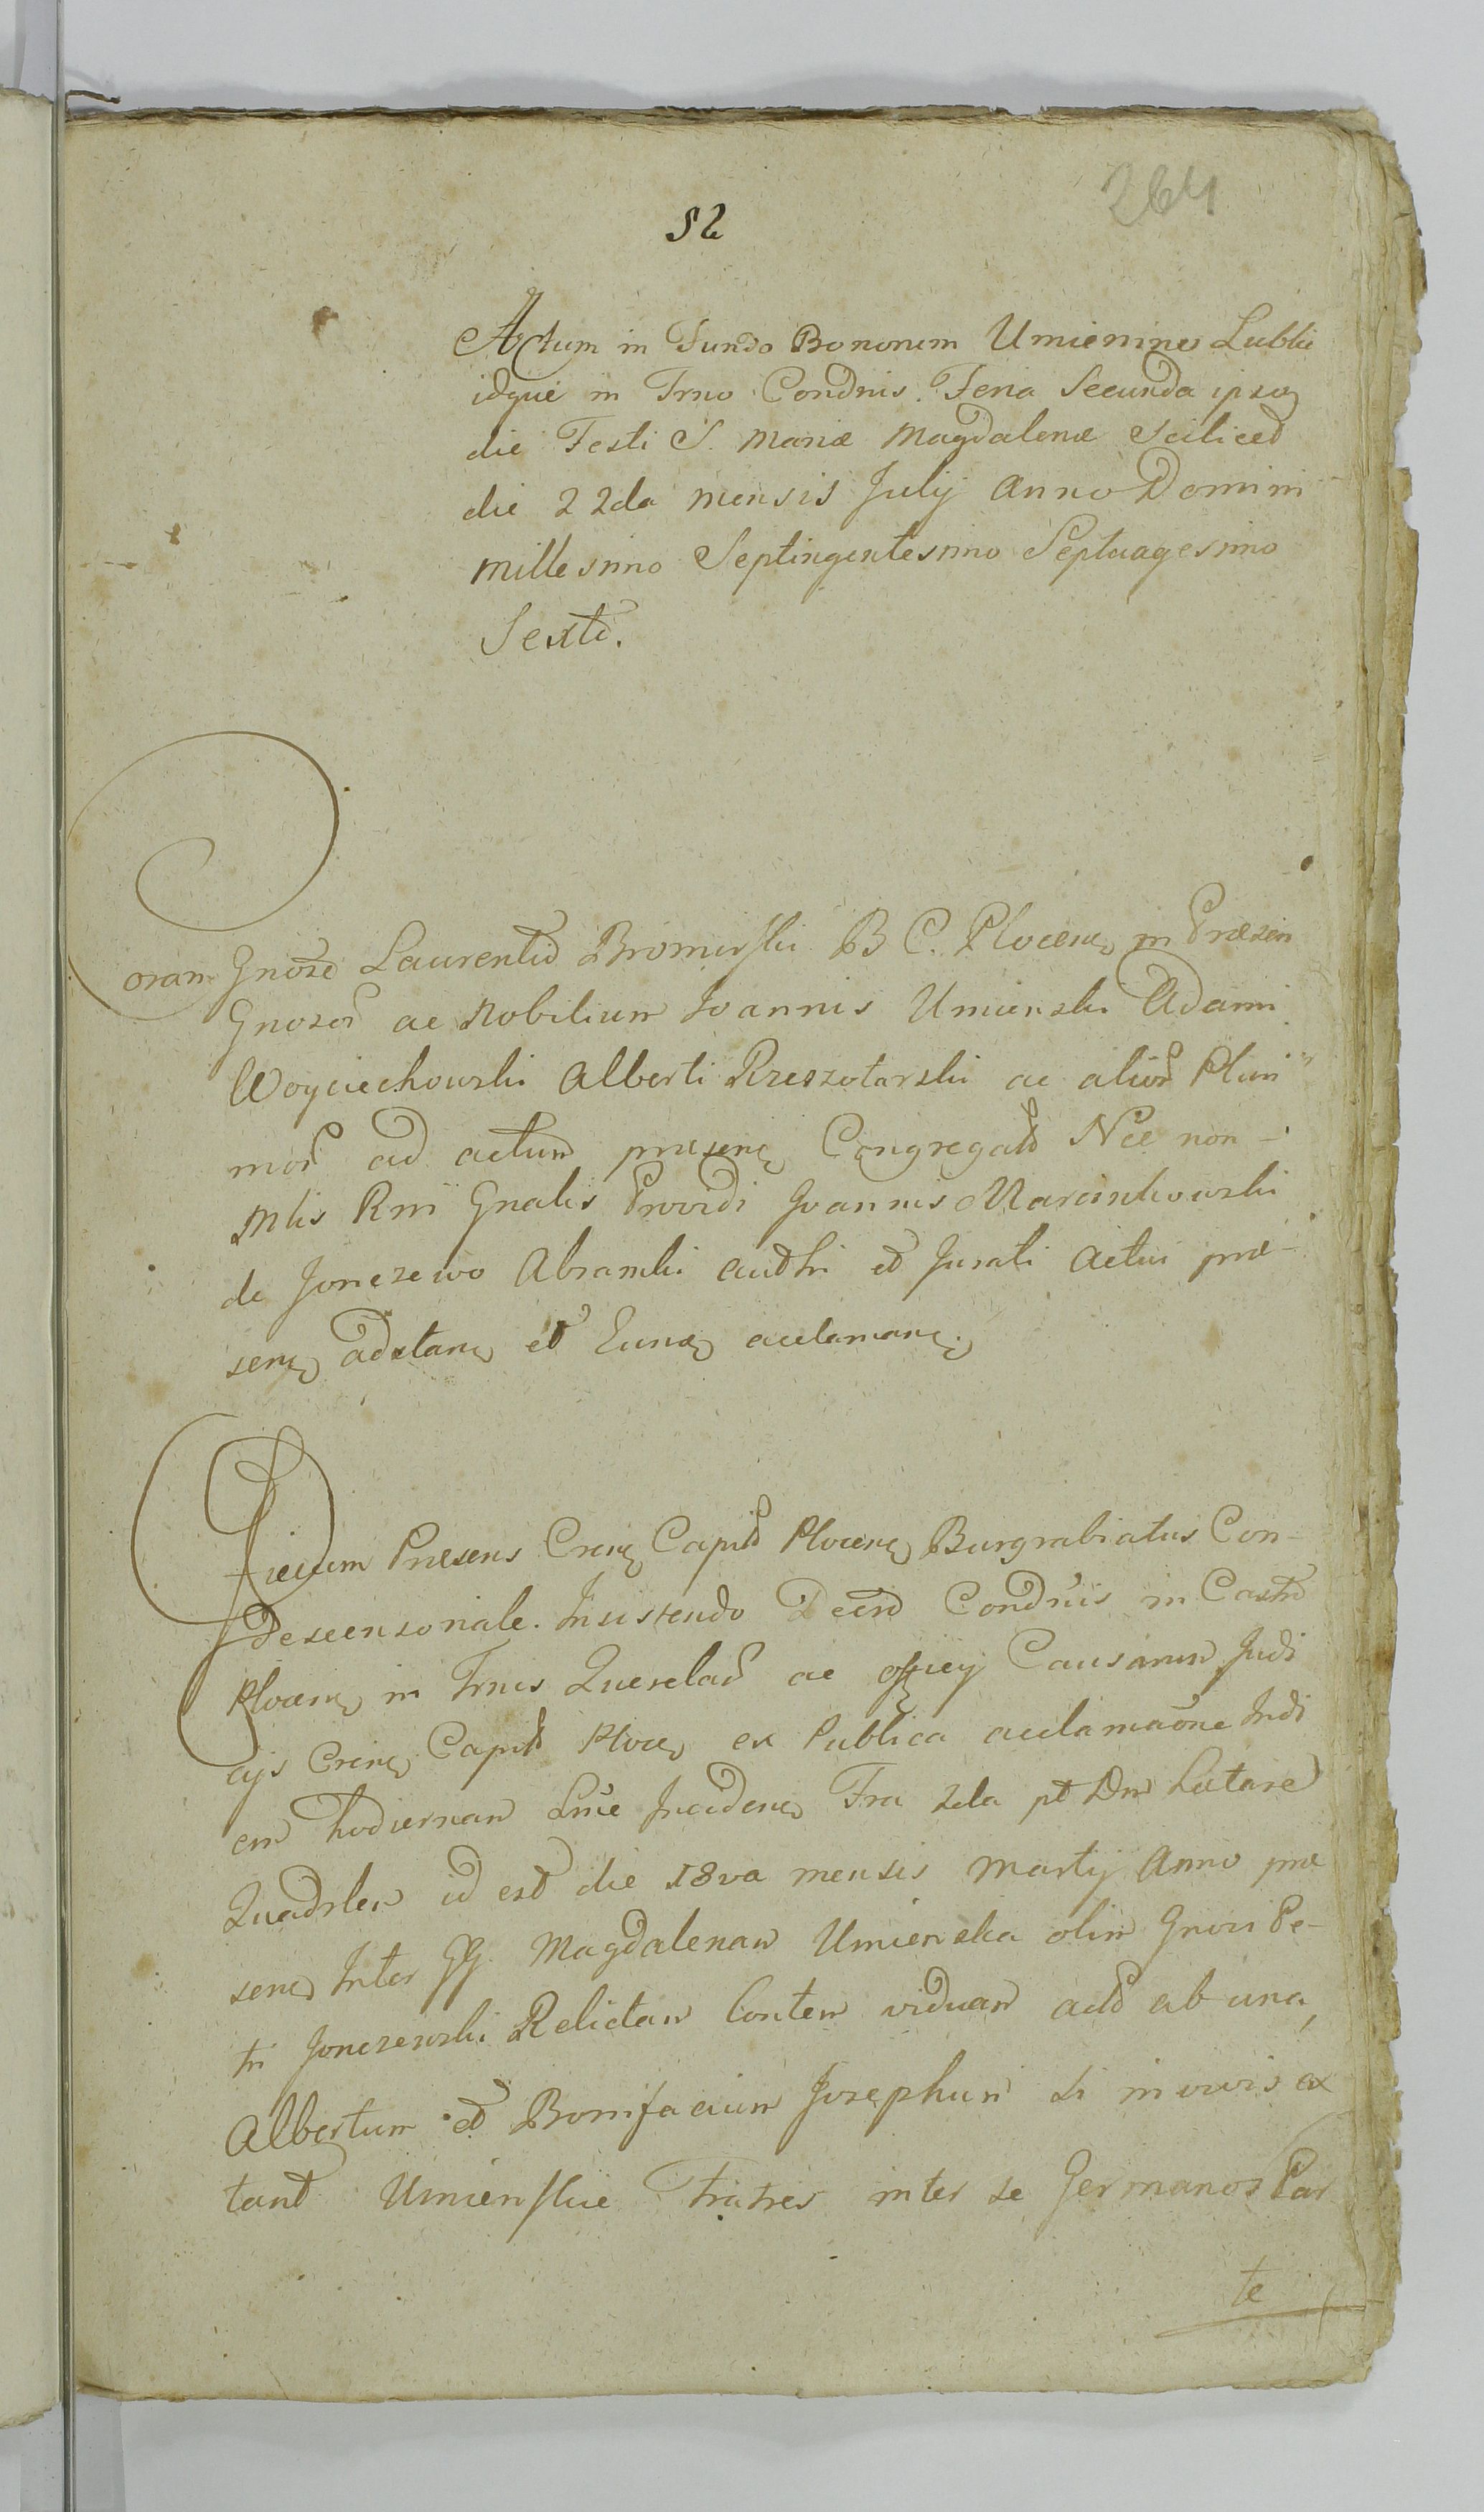 264
52
Actum in Fundo Bonorum Umienino Lubkie
idque in Trno Condnis. Feria Secunda ipso
die Festi S. Mariæ Magdalenæ Sciliced
die 22da Mensis Julij Anno Domini
Millesimo Septingentesimo Septuagesimo
Sexto.
Coram Gnoso Laurentio Bromirski B C. Plocen in Præsen
Gnosor ac Nobilium Joannis Umienski Adami
Woyciechowski Alberti Rzeszotarski ac alior Pluri
mor ad actum præsen Congregato Nec non
Mlis Rni Gnalis Providi Joannis Marcinkowski
de Jonczewo Abramki authi et Jurati Actui præ-
sen adstan et Eunq acclaman.
Judicium Præsens Cren Capit Plocen Burgrabiatus Con-
descensoriale. Insistendo Decro Condnis in Castro
Plocen in Trnis Querelar ac officij Causarum Judi
cijs Cren Capit Ploc ex Publica acclamaone Indi
em hodiernam Lme Inciden Fra 2da pt Dnm Lætare
Quadrlem id est die 18va mensis Martij Anno præ
sen Inter GG. Magdalenam Umienska olim Gnosi Pe-
tri Jonczewski Relictam Contem viduam act ab una,
Albertum et Bonifacium Josephum si in vivis ex
tant Umienskie Fratres inter se Germanos Par
te